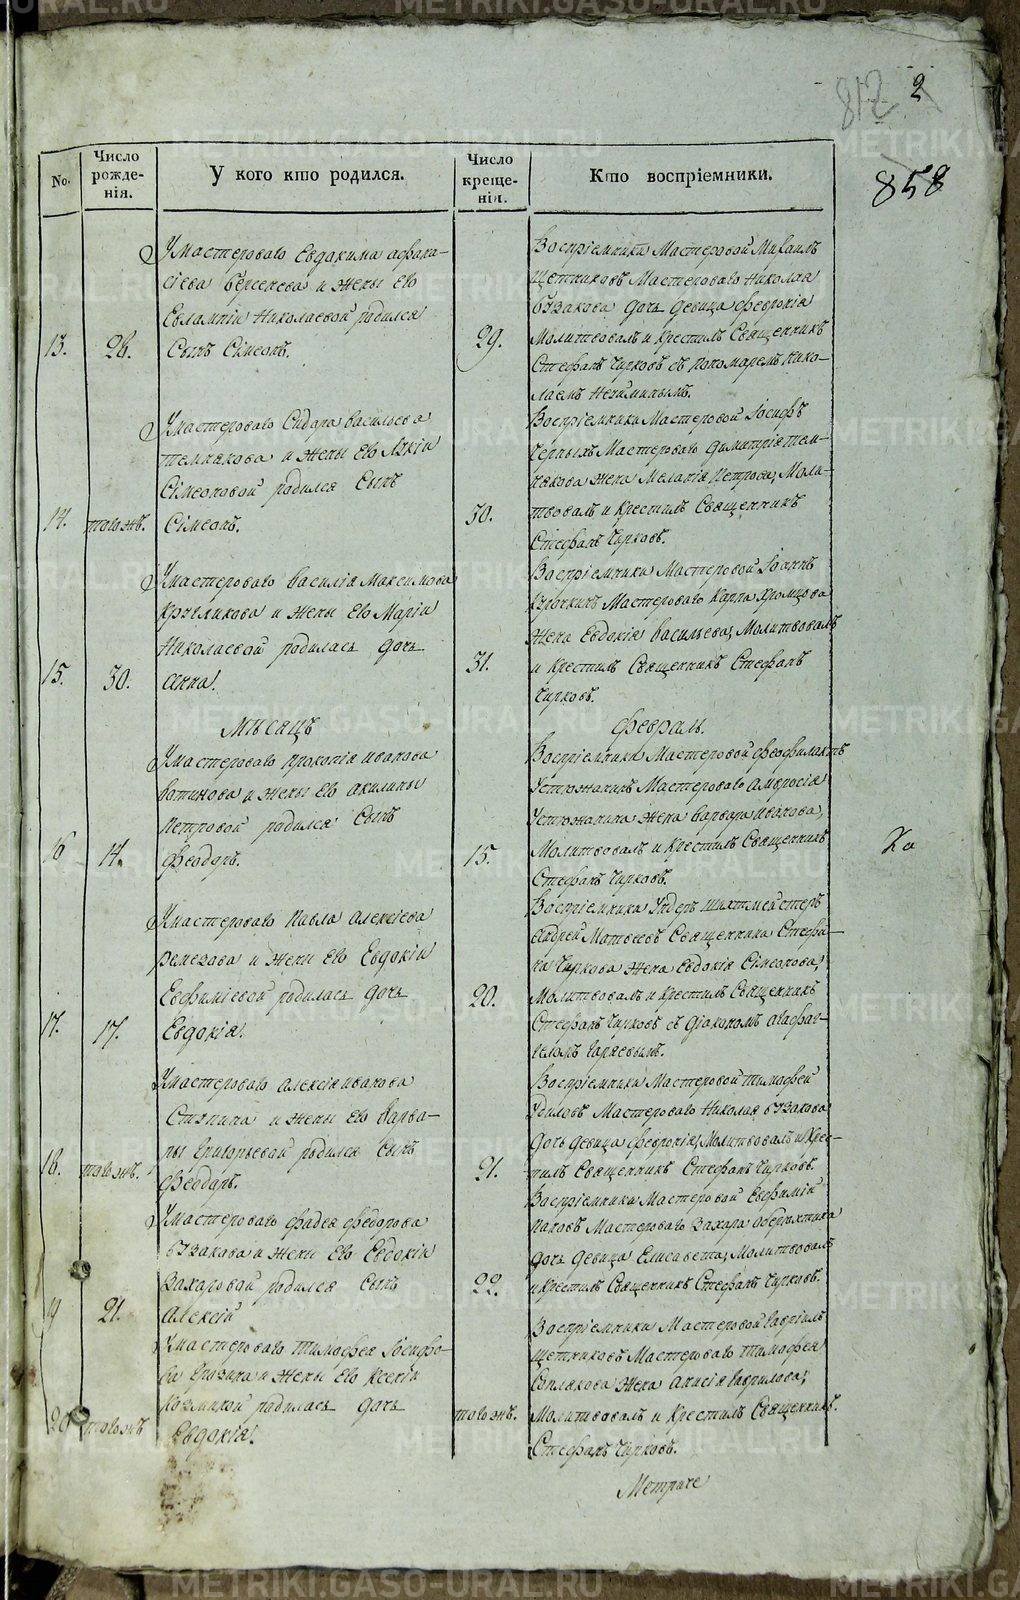 812 2
858
No.
Число рожде-
нія.
У кого кто родился.
Число креще-
нія.
Кто воспріемники.
У мастероваго Евдокима афана-
сіева берсенева и жены его
Евлампіи Николаевой родился
13. 26. Сынъ Сімеонъ. 29.
Воспріемники Мастеровой Михаилъ
Щетниковъ Мастероваго Николая
бузакова дочь девица феѵронія
Молитвовалъ и Крестилъ Священникъ
Стефанъ Чирковъ съ пономаремъ Нико-
лаемъ
У мастероваго Сидара васильева
и жены его
Сімеоновой родился Сынъ
14. тогожъ. Сімеонъ. 30.
Воспріемники Мастеровой Іосифъ
Черныхъ Мастероваго Димитрія тем-
някова жена Меланія Петрова, Моли-
твовалъ и Крестилъ Священникъ
Стефанъ Чирковъ.
У мастероваго василія Максимова
Кругликова и жены его Маріи
Николаевой родилась дочь
15. 30. Анна. 31.
Воспріемники Мастеровой Іоаннъ
Курочкинъ Мастероваго Карпа Хромцова
Жена Евдокія васильева, Молитвовалъ
и Крестилъ Священникъ Стефанъ
Чирковъ.
Мѣсяцъ февраль.
У мастероваго прокопія иванова
вотинова и жены его акилины
Петровой родился Сынъ
16 14. Феодоръ. 15.
Воспріемники Мастеровой феофилактъ
Устюжанинъ Мастероваго Амвросія
Устюжанина жена варвара иванова,
Молитвовалъ и Крестилъ Священникъ
Стефанъ Чирковъ.
У мастероваго Павла алексіева
ремезова и жены его Евдокіи
Евфиміевой родилась дочь
17. 17. Евдокія. 20.
Воспріемники Ундеръ шихтмейстеръ
Андрей Матвеевъ Священника Стефа-
на Чиркова жена Евдокія Сімеонова,
Молитвовалъ и Крестилъ Священникъ
Стефанъ Чирковъ съ діакономъ
У мастероваго алексія иванова
Ступина и жены его варва-
ры григорьевой родился Сынъ
18. тогожъ. Феодоръ. 21.
Воспріемники Мастеровой тимофей
Удиловъ Мастероваго Николая бузакова
дочь девица феѵронія, Молитвовалъ и Крес-
тилъ Священникъ Стефанъ Чирковъ.
У мастероваго фадея федорова
бузакова и жены его Евдокіи
Захаровой родился сынъ
19 21. Алексій 22.
Воспріемники Мастеровой Евфимій
Поповъ Мастероваго Захара оберюхтина
дочь девица Елисавета, Молитвовалъ
и Крестилъ Священникъ Стефанъ Чирковъ.
У мастероваго тимофея Іосифо-
ва Ерозина и жены его Ксеніи
Козминой родилась дочь
20 тогожъ Евдокія. тогожъ.
Воспріемники Мастеровой гавріилъ
щетниковъ Мастероваго тимофея
жена Анисія гаврилова,
Молитвовалъ и Крестилъ Священникъ.
Стефанъ Чирковъ.
Метриче
METRIKI.GASO-URAL.RU